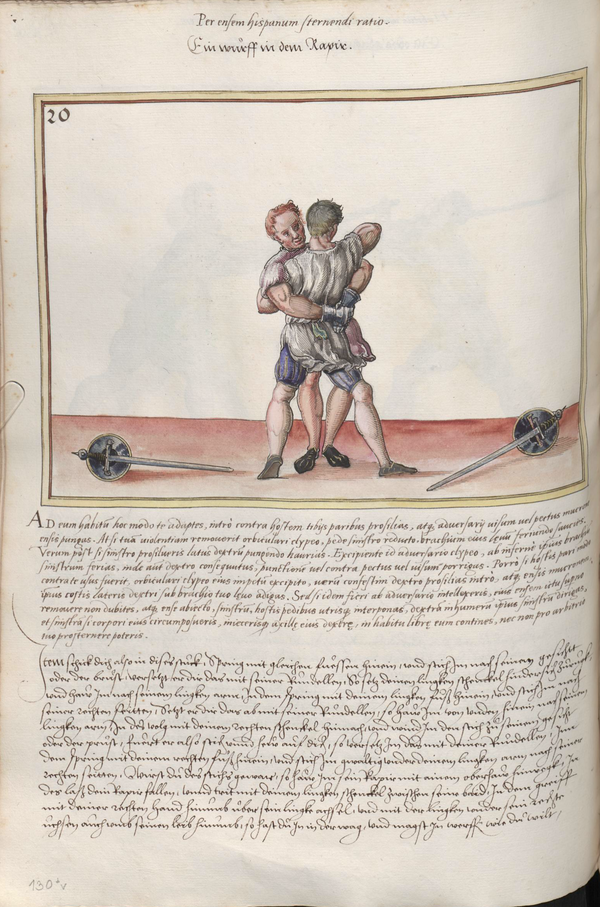 Per ensem hispanum sternendi ratio.
Ein wurff in dem Rapir.
20
AD eum habitũ hoc modo te adaptes, intrò contra hostem tibijs paribus prosilias, atq; adversarij visum vel pectus mucrone
ensis pungas. At si tuã violentiam removerit orbiculari clypeo, pede sinistro reducto brachium eius leuũ feriundo saucies.
Verum pòst si sinistro prosilueris latus dextrũ pungendo haurias. Excipiente id adversario clypeo, ab inferno ipsius brachiũ
sinistrum ferias, inde aut dextro consequutus, punctione vel contra pectus vel visum porrigas. Porrò si hostis pari modo
contra te usus fuerit, orbiculari clypeo eius impetũ excipito, verũ confestim dextro prosilias intro, atq; ensis mucronem
ipsius costis lateris dextri sub brachio tuo leuo adigas. Sed si idem fieri ab adversario intellexeris, eius ensem ictu superno
removere non dubites, atq; ense abiecto, sinistrũ, hostis pedibus utrisq; interponas, dextrã humero ipsius sinistro dirigas,
et sinistrã si corpori eius circumposueris, inieceris,q; axillę eius dextrę, in habitu librę eum contines, nec non pro arbitrio
tuo prosternere poteris.
Item schick dich also in dises stuck, Spring mit gleichen fuessen hinein, und stich Im nach seinem gesicht
oder der brust, versetzt er dir das mit seiner Rundellen, So setz deinen lingken schenckel hinder sich zuruck,
und haw Im nach seinem lingken arm. Indem spring mit deinem lingken fuß hinein, und stich Im nach
seiner rechten seitten, Setzt er dir das ab mit seiner Rundellen, so haw Im von unden seinen nach seinem
lingken arm, In des volg mit deinem rechten schenckel hinnach, und wend Im den stich zu seinem gesicht
oder der prust, fuert er also stich unnd hew auf dich, so versetz Im das mit deiner Rundellen, Inn
dem spring mit deinem rechten fuß hinein, und stich Im gwaltig under deinem lingken arm nach seiner
rechten seitten, Wirst du des stichs gewar, so haw Im sein Rapir mit ainem oberhaw hinweck, In
des laß dein Rapir fallen, unnd trit mit deinem lingken schenckel zwischen seine baid, In dem greiff
mit deiner rechten hand hinumb uber sein lingke achsel, und mit der lingken under sein rechte
uchsen auch umb seinen leib hinumb, so hast du In in der wag, und magst In werffen wie du wilt,
130ᵃv